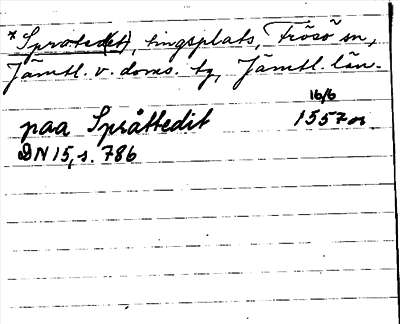 *Språtted(et), tingsplats, Frösö sn,
Jämtl. v. doms. tg, Jämtl. län.
16/6
paa Språttedit 1557
DN 15, s. 786